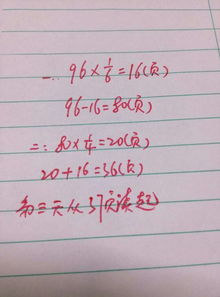 一、96×1/6=16(页)
96-16=80(页)
二:80×1/4=20(页)
20+16=36(页)
第三天从37页读起